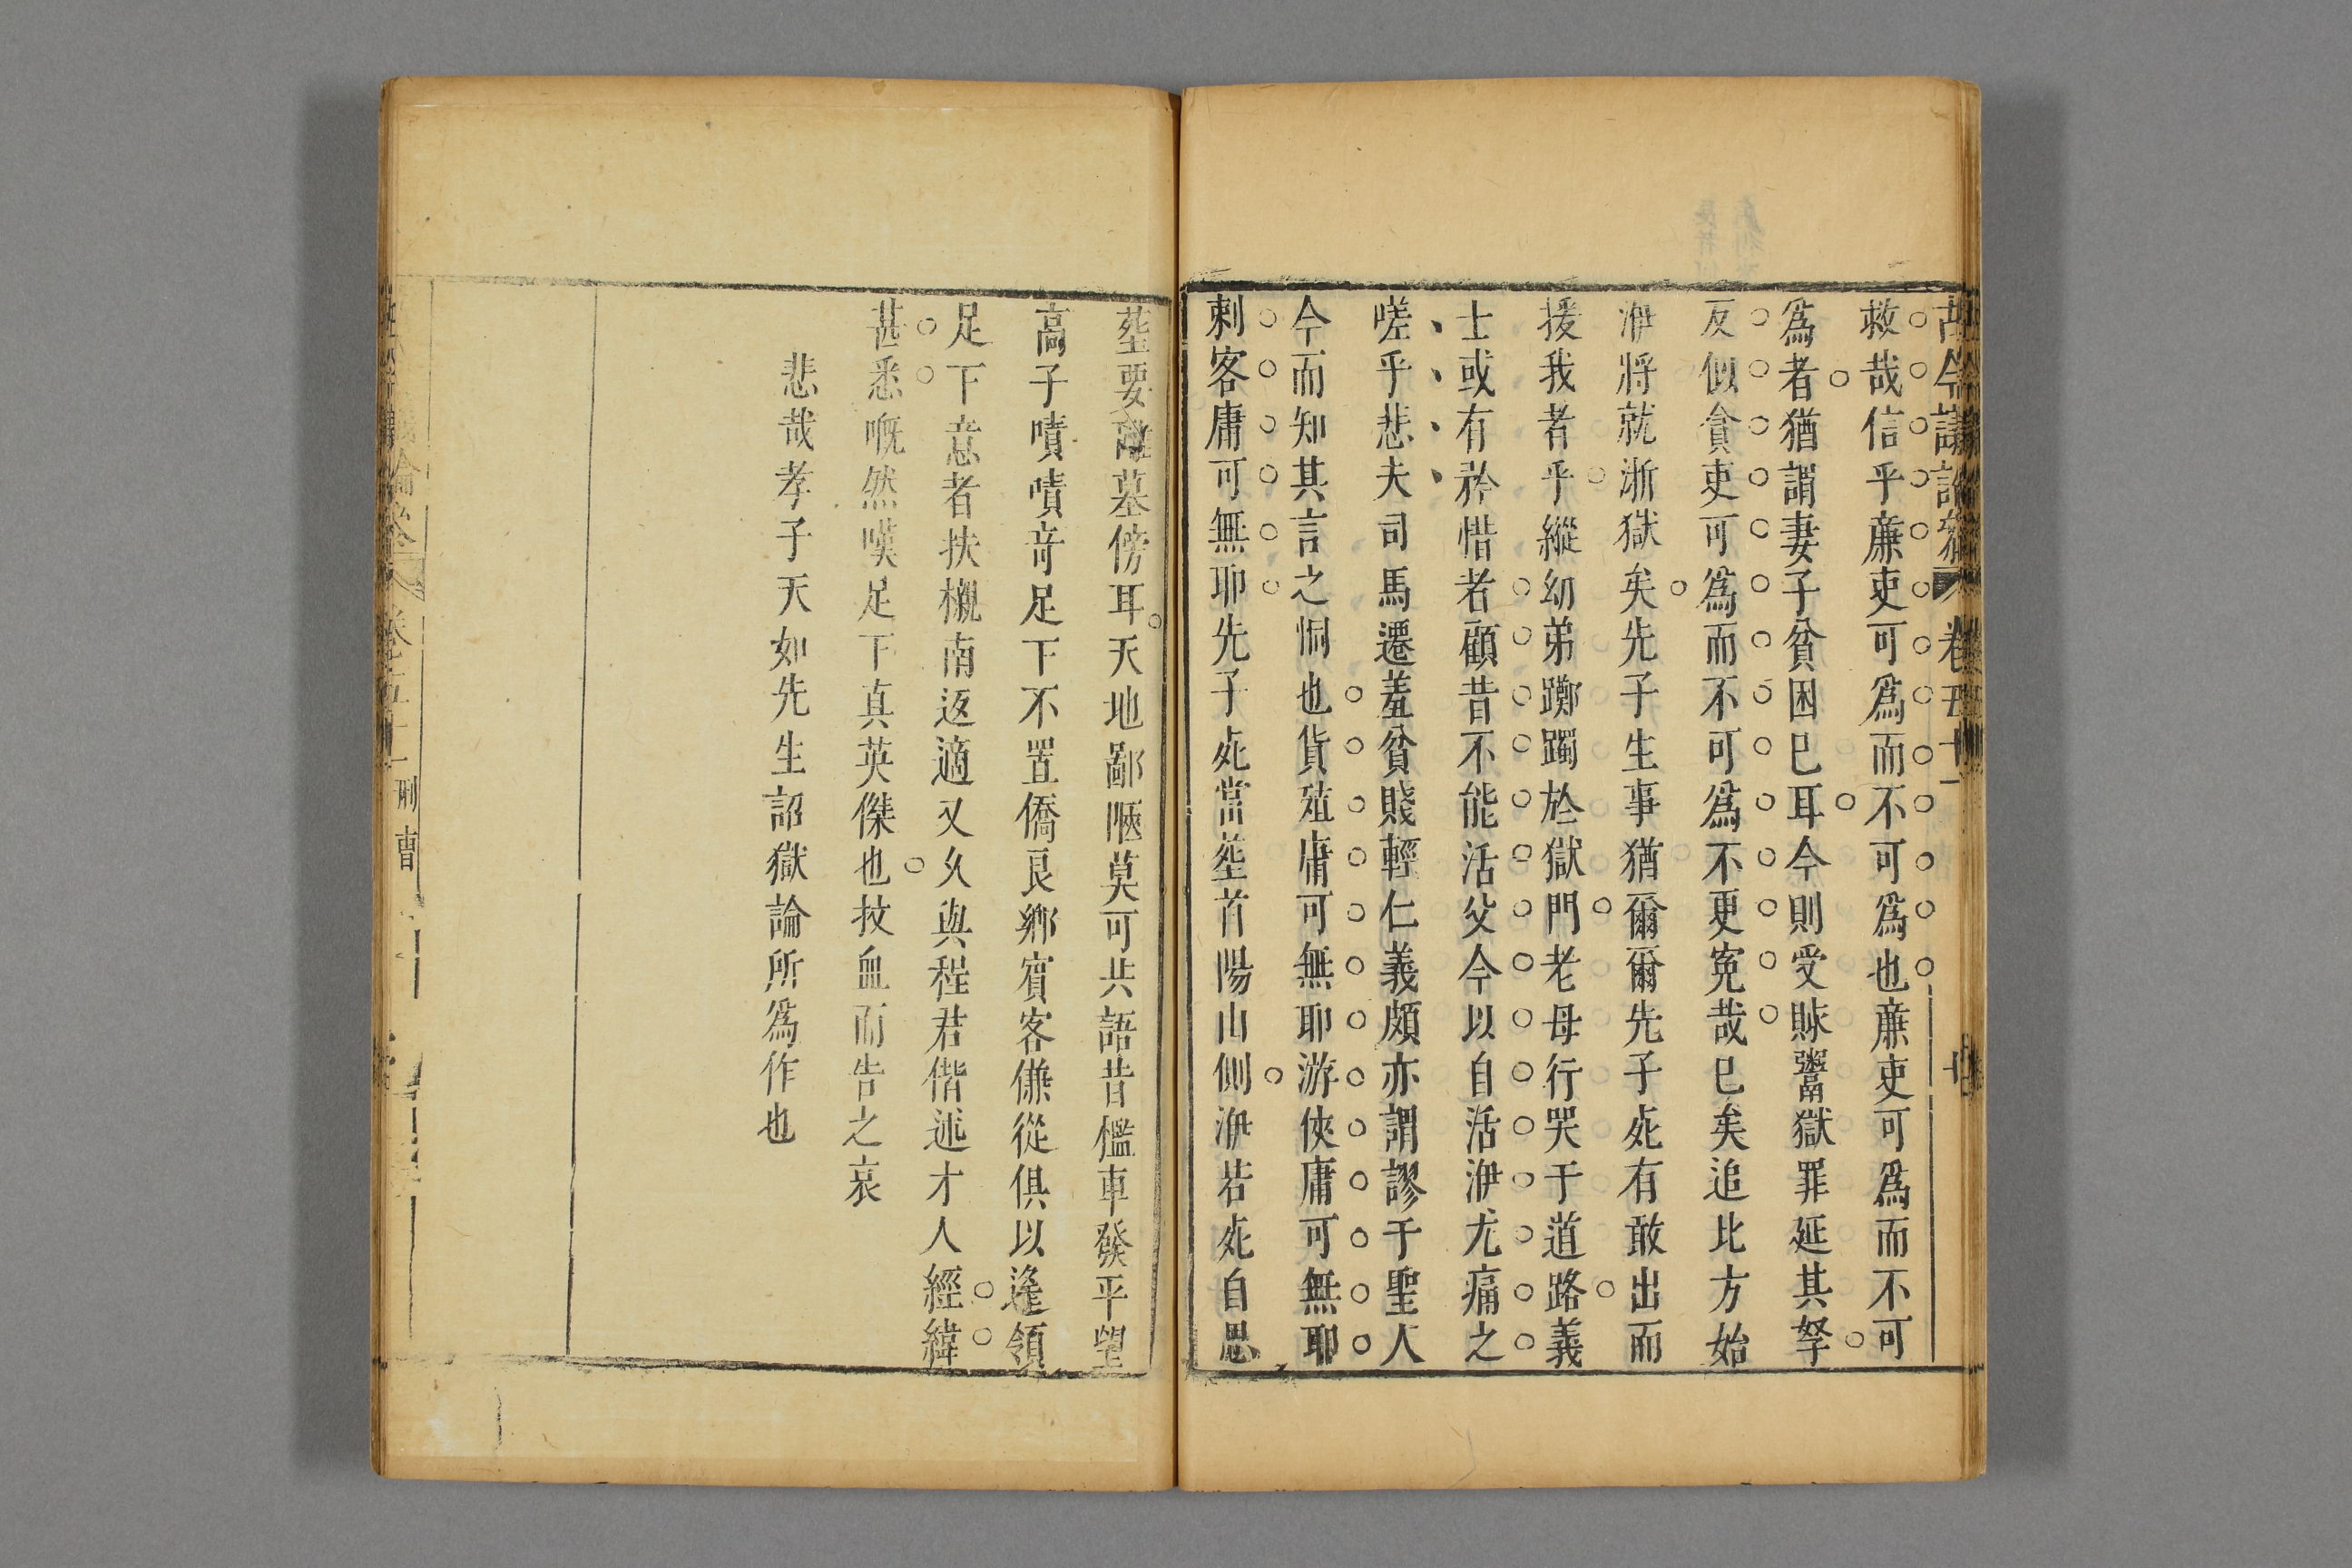 救哉信乎廉吏可爲而不可爲也廉吏可爲而不可
爲者猶謂妻子貧困已耳今則受賕鬻獄罪延其孥
反似貪吏可爲而不可爲不更寃哉已矣追比方始
洊將就浙獄矣先子生事猶爾爾先子死有敢出而
援我者乎縱幼弟躑躅於獄門老母行哭于道路義
士或有矜惜者顧昔不能活父今以自活洊尤痛之
嗟乎悲夫司馬遷羞貧賤輕仁義頗亦謂謬于聖人
今而知其言之恫也貨殖庸可無耶游俠庸可無耶
刺客庸可無耶先子死當塟首陽山側洊若死自思
塟要離墓傍耳天地鄙陋莫可共語昔檻車發平望
高子嘖嘖奇足下不置僑良鄉賓客傔從俱以逢領
足下意者扶櫬南返適又久與程君偕述才人經緯
甚悉嘅然嘆足下真英傑也抆血而告之哀
悲哉孝子天如先生詔獄論所爲作也
卷五十一 刑曹